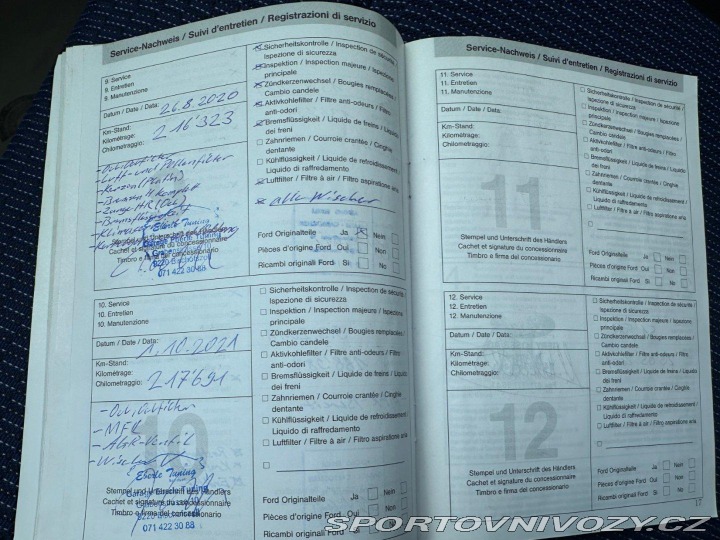 Service-Nachweis / Suivi d'entretien / Registrazioni di servizio
9. Service
9. Entretien
9. Manutenzione
Datum / Date / Data: 26.8.2020
Km-Stand:
Kilométrage:
Chilometraggio: 216'323
- Luft- und Pollenfilter
- Bremsflüssigkeit
Eberle Tuning
Stempel und Unterschrift des Händlers
Cachet et signature du concessionnaire
Timbro e firma del concessionario
9220 Bischofszell
071 422 30 88
Sicherheitskontrolle / Inspection de sécurité /
Ispezione di sicurezza
Inspektion / Inspection majeure / Ispezione
principale
Zündkerzenwechsel / Bougies remplacées /
Cambio candele
Aktivkohlefilter / Filtre anti-odeurs / Filtro
anti-odori
Bremsflüssigkeit / Liquide de freins / Liquido
dei freni
Zahnriemen / Courroie crantée / Cinghie
dentante
Kühlflüssigkeit / Liquide de refroidissement /
Liquido di raffredamento
Luftfilter / Filtre à air / Filtro aspirazione aria
alle Wischer
Ford Originalteile Ja Nein
Pièces d'origine Ford Oui Non
Ricambi originali Ford Si No
10. Service
10. Entretien
10. Manutenzione
Datum / Date / Data: 1.10.2021
Km-Stand:
Kilométrage:
Chilometraggio: 217'691
- Oel, Oelfilter
- MFK
- AGR-Ventil
- Wischer
10
Eberle Tuning
Stempel und Unterschrift des Händlers
Cachet et signature du concessionnaire
Timbro e firma del concessionario
9220 Bischofszell
071 422 30 88
Sicherheitskontrolle / Inspection de sécurité /
Ispezione di sicurezza
Inspektion / Inspection majeure / Ispezione
principale
Zündkerzenwechsel / Bougies remplacées /
Cambio candele
Aktivkohlefilter / Filtre anti-odeurs / Filtro
anti-odori
Bremsflüssigkeit / Liquide de freins / Liquido
dei freni
Zahnriemen / Courroie crantée / Cinghie
dentante
Kühlflüssigkeit / Liquide de refroidissement /
Liquido di raffredamento
Luftfilter / Filtre à air / Filtro aspirazione aria
Ford Originalteile Ja Nein
Pièces d'origine Ford Oui
Ricambi originali Ford Si
Service-Nachweis / Suivi d'entretien / Registrazioni di servizio
11. Service
11. Entretien
11. Manutenzione
Datum / Date / Data:
Km-Stand:
Kilométrage:
Chilometraggio:
11
Stempel und Unterschrift des Händlers
Cachet et signature du concessionnaire
Timbro e firma del concessionario
Sicherheitskontrolle / Inspection de sécurité /
Ispezione di sicurezza
Inspektion / Inspection majeure / Ispezione
principale
Zündkerzenwechsel / Bougies remplacées /
Cambio candele
Aktivkohlefilter / Filtre anti-odeurs / Filtro
anti-odori
Bremsflüssigkeit / Liquide de freins / Liquido
dei freni
Zahnriemen / Courroie crantée / Cinghie
dentante
Kühlflüssigkeit / Liquide de refroidissement /
Liquido di raffredamento
Luftfilter / Filtre à air / Filtro aspirazione aria
Ford Originalteile Ja Nein
Pièces d'origine Ford Oui Non
Ricambi originali Ford Si No
12. Service
12. Entretien
12. Manutenzione
Datum / Date / Data:
Km-Stand:
Kilométrage:
Chilometraggio:
12
Stempel und Unterschrift des Händlers
Cachet et signature du concessionnaire
Timbro e firma del concessionario
Sicherheitskontrolle / Inspection de sécurité /
Ispezione di sicurezza
Inspektion / Inspection majeure / Ispezione
principale
Zündkerzenwechsel / Bougies remplacées /
Cambio candele
Aktivkohlefilter / Filtre anti-odeurs / Filtro
anti-odori
Bremsflüssigkeit / Liquide de freins / Liquido
dei freni
Zahnriemen / Courroie crantée / Cinghie
dentante
Kühlflüssigkeit / Liquide de refroidissement /
Liquido di raffredamento
Luftfilter / Filtre à air / Filtro aspirazione aria
Ford Originalteile Ja Nein
Pièces d'origine Ford Oui Non
Ricambi originali Ford Si No
17
SPORTOVNIVOZY.CZ